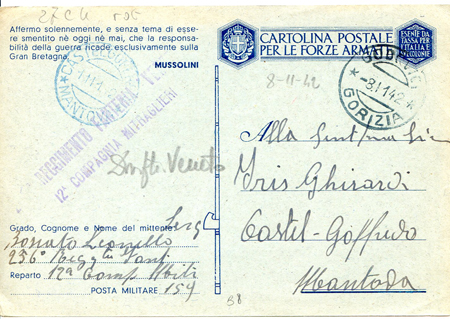 Affermo solennemente, e senza tema di esse-
re smentito nè oggi nè mai, che la responsa-
bilità della guerra ricade esclusivamente sulla
Gran Bretagna.
MUSSOLINI
CARTOLINA POSTALE
PER LE FORZE ARMATE
ESENTE DA
TASSA PER
L'ITALIA E
COLONIE
8-11-42
GORIZIA
REGGIMENTO FANTERIA
12ª COMPAGNIA MITRAGLIERI
Veneto
Alla
Iris Ghirardi
Castel-Goffredo
Mantova
Grado, Cognome e Nome del mittente Serg
Leonello
256° Regg Fant
Reparto 12ª Comp
POSTA MILITARE 159